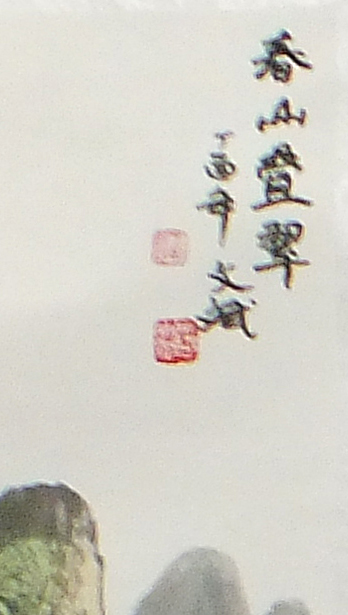 春山叠翠
丁酉年 文斌